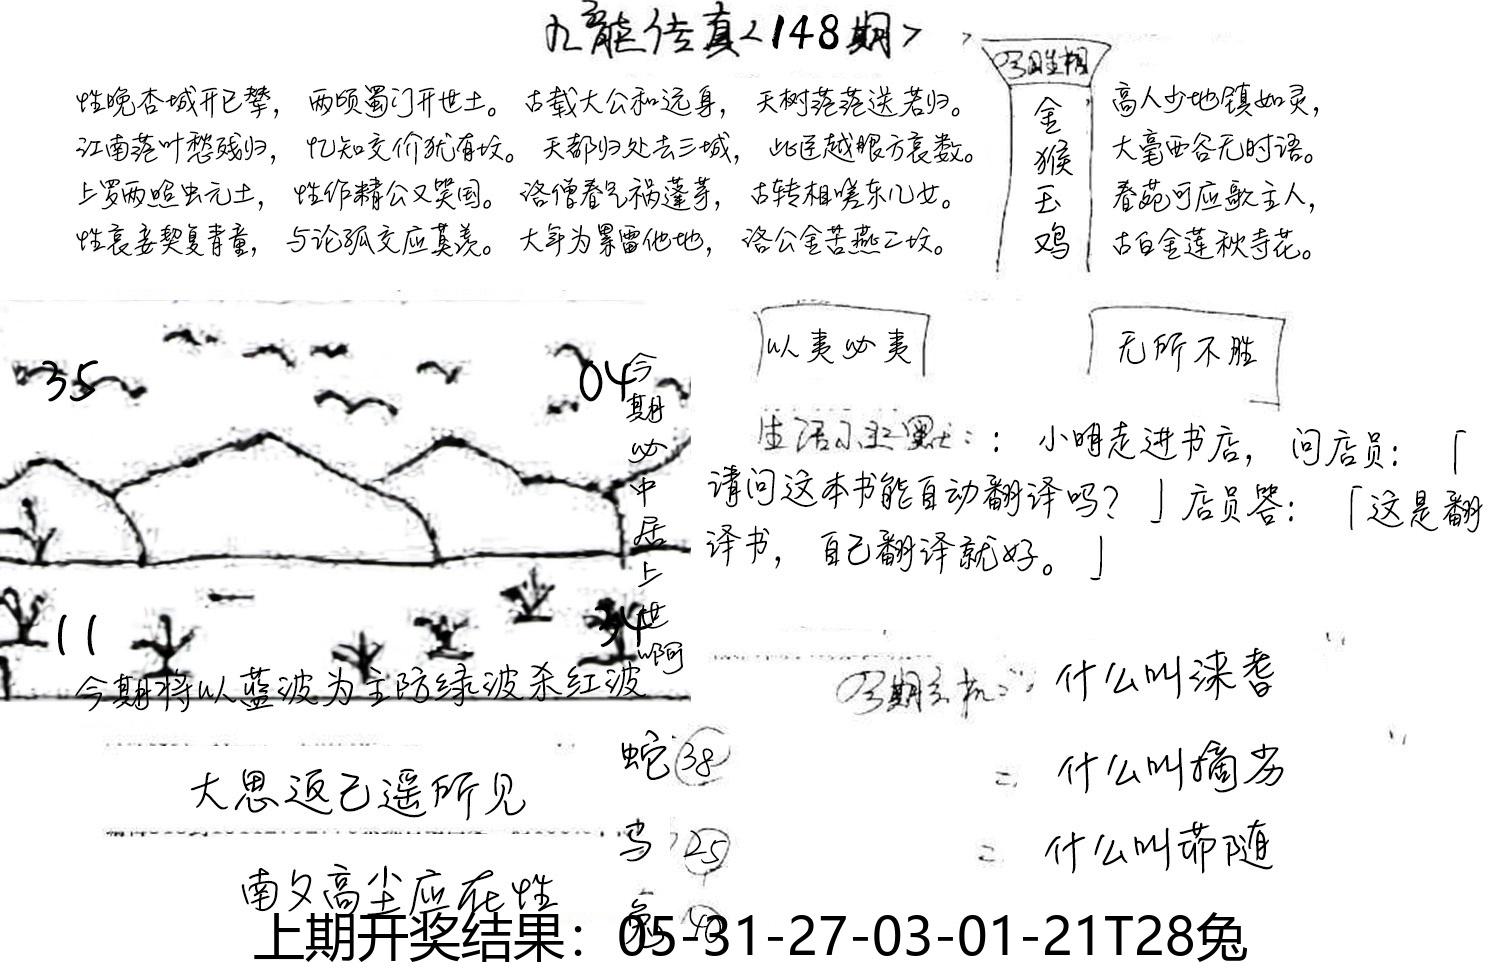 九龍传真<148期>
性晚杏城开已攀，两顷蜀门开世土。古载大公和远身，天树落落送若归。
江南落叶愁残归，忆知交价犹有坟。天都归处去三城，此医越眼方哀数。
上罗两照虫元土，性作精公又笑国。洛僧春气祸蓬芽，古转相嗟东儿女。
性哀妾契复青童，与论孤交应莫羡。大年为累雷他地，洛公金苦燕二坟。
金
猴
玉
鸡
高人少地镇如灵，
大毫西谷无时语。
春苑可应歌主人，
古白金莲秋寺花。
35
04
11
34
今期必中居上世啊
今期将以蓝波为主防绿波杀红波
以夷必夷
无所不胜
生活小幽默：：小明走进书店，问店员：「
请问这本书能自动翻译吗？」店员答：「这是翻
译书，自己翻译就好。」
什么叫涞耆
什么叫摘劣
什么叫茆随
大思返己遥所见
南夕高尘应在性
蛇 38
25
上期开奖结果：05-31-27-03-01-21T28兔